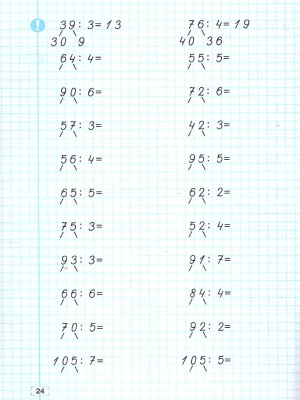 ! 39: 3= 13 76: 4= 19
30 9 40 36
64: 4= 55: 5=
90: 6= 72: 6=
57: 3= 42: 3=
56: 4= 95: 5=
65: 5= 62: 2=
75: 3= 52: 4=
93: 3= 91: 7=
66: 6= 84: 4=
70: 5= 92: 2=
105: 7= 105: 5=
24